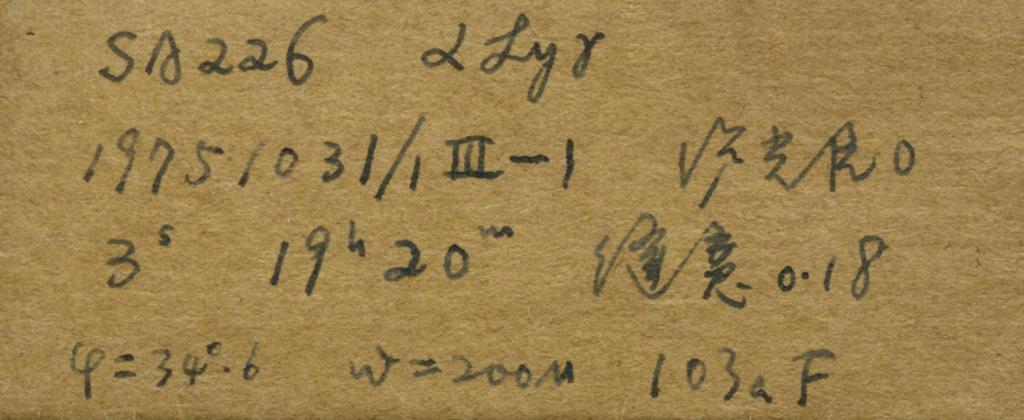 SA226 α Lyr
19751031/1 Ⅲ-1 0
3ˢ 19ʰ20ᵐ 缝意 0.18
φ=34°.6 w=200μ 103aF